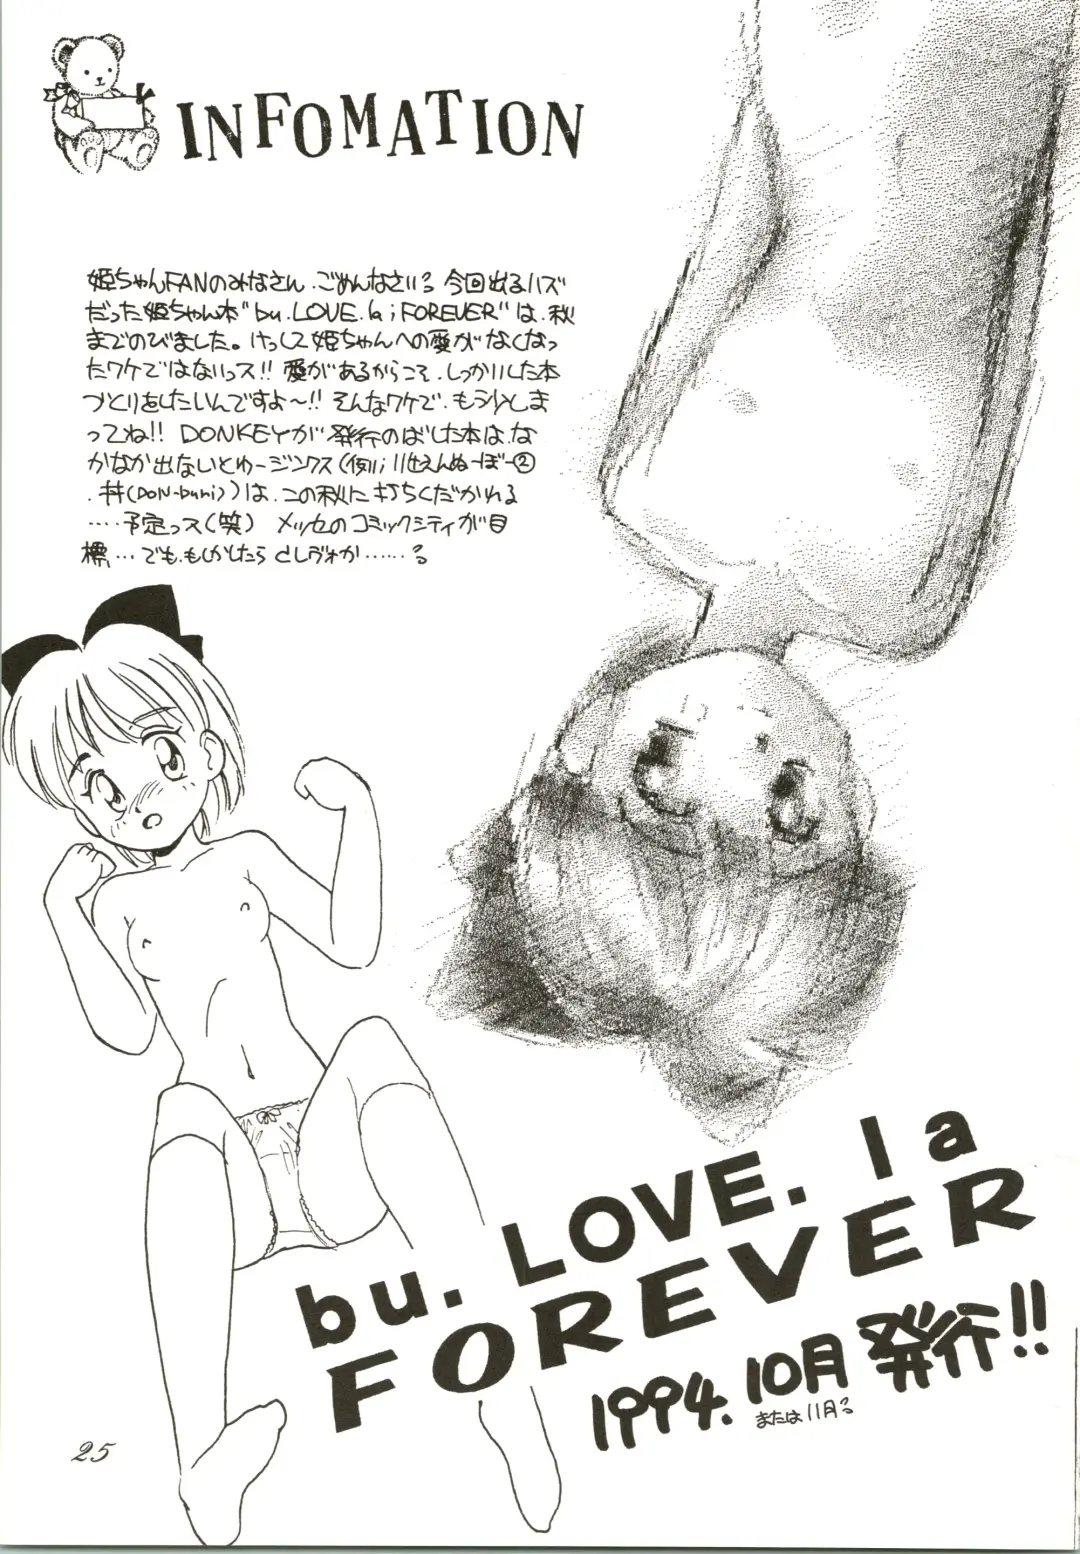 INFOMATION
姫ちゃんFANのみなさん、ごめんなさい。 今回出るハズ
だった姫ちゃん本"bu.LOVE.la;FOREVER"は、秋
までのびました。けっして姫ちゃんへの愛がなくなっ
たワケではないっス!! 愛があるからこそ、しっかりした本
づくりをしたいんですよ~!! そんなワケで、もう少しま
ってね!! DONKEYが発行のばした本は、な
かなか出ないとゆージンクス(例;
は、この秋に打ちくだかれる
‥‥予定っス(笑) メッセのコミックシティが目
標、…でも、もしかしたら としヴォか……
bu. LOVE. la
FOREVER
1994. 10月 発行!!
または11月
25